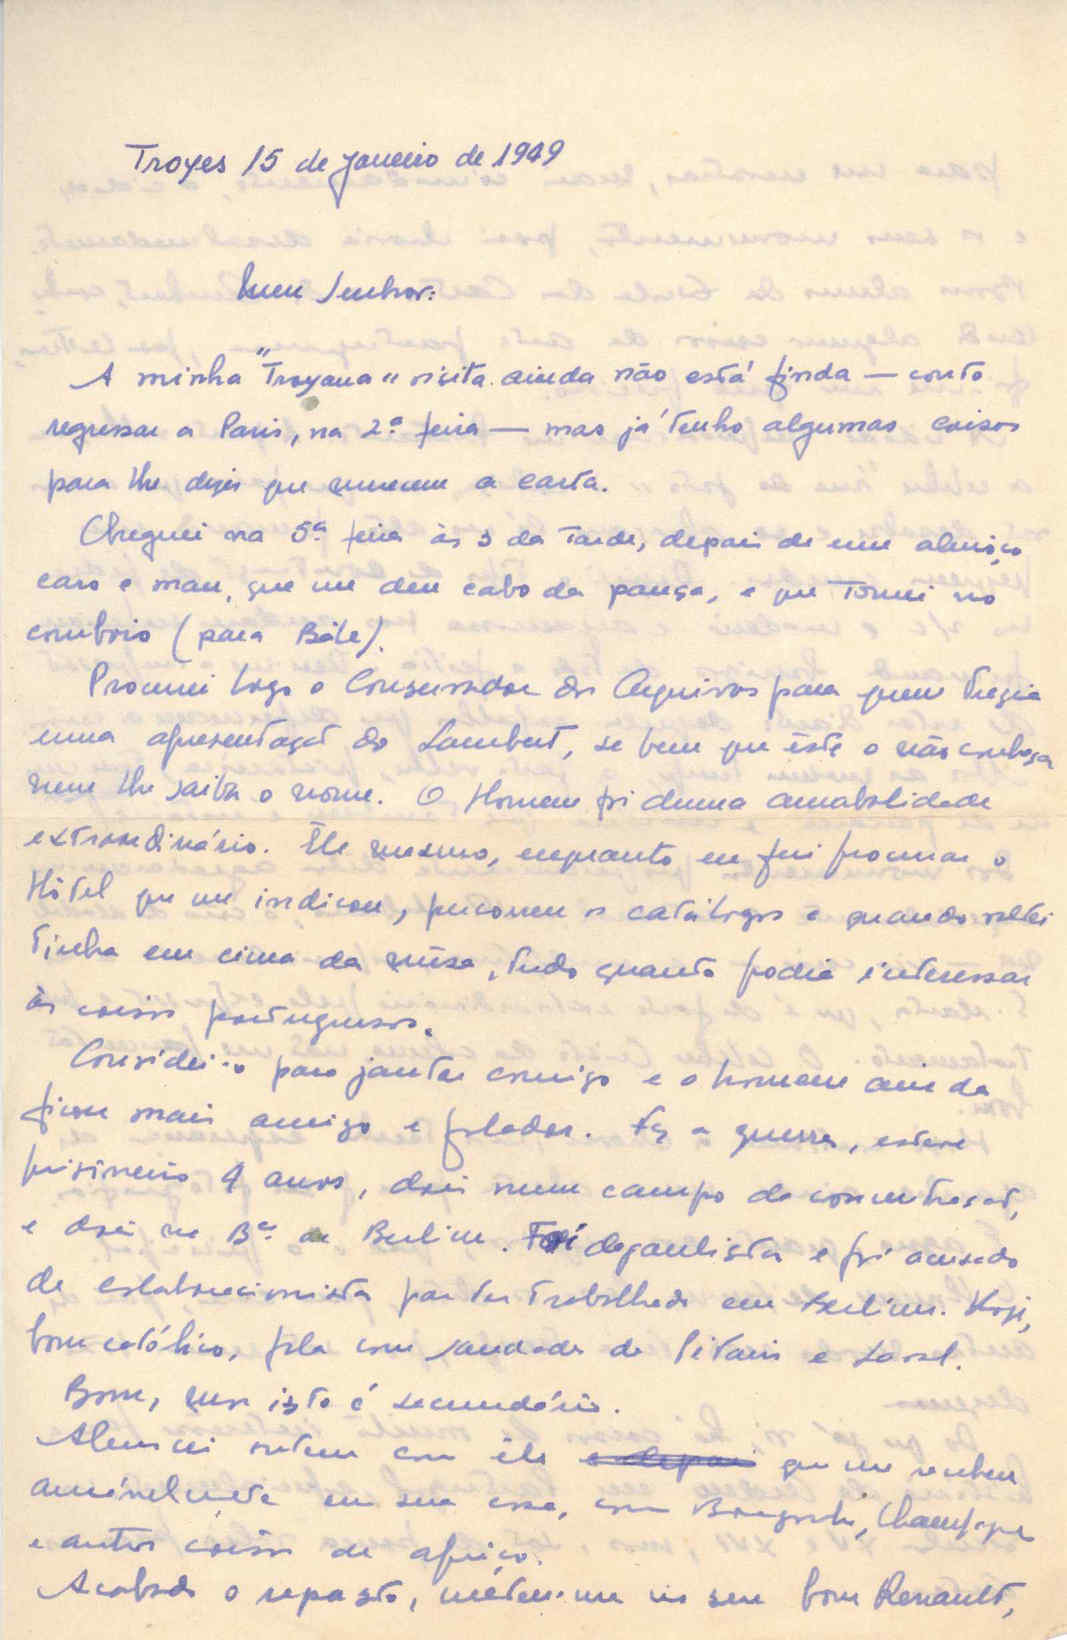 Troyes 15 de Janeiro de 1949
Meu Senhor:
A minha "Troyana" visita ainda não está finda — conto
regressar a Paris, na 2.ª feira — mas já tenho algumas coisas
para lhe dizer que merecem a carta.
Cheguei na 5ª feira às 3 da tarde, depois de um almôço
caro e mau, que me deu cabo da pança, e que tomei no
comboio (para Bâle).
Procurei logo o Conservador dos Arquivos para quem trazia
uma apresentação do Lambert, se bem que êste o não conheça
nem lhe saiba o nome. O Homem foi duma amabilidade
extraordinária. Êle mesmo, enquanto eu fui procurar o
Hôtel que me indicou, percorreu os catálogos e quando voltei
tinha em cima da mêsa, tudo quanto podia interessar
às coisas portuguesas.
Convidei-o para jantar comigo e o homem ainda
ficou mais amigo e falador. Fez a guerra, esteve
prisioneiro 4 anos, dois num campo de concentração,
e dois na Bª de Berlim. Foi degaulista e foi acusado
de colaboracionista por ter trabalhado em Berlim. Hoje,
bom católico, fala com saudade de Pétain e Laval.
Bom, mas isto é secundário.
Almocei ontem com êle que me recebeu
amàvelmente em sua casa, com Borgonha, Champagne
e outras coisas de apreço.
Acabado o repasto, meteu-me no seu bom Renault,